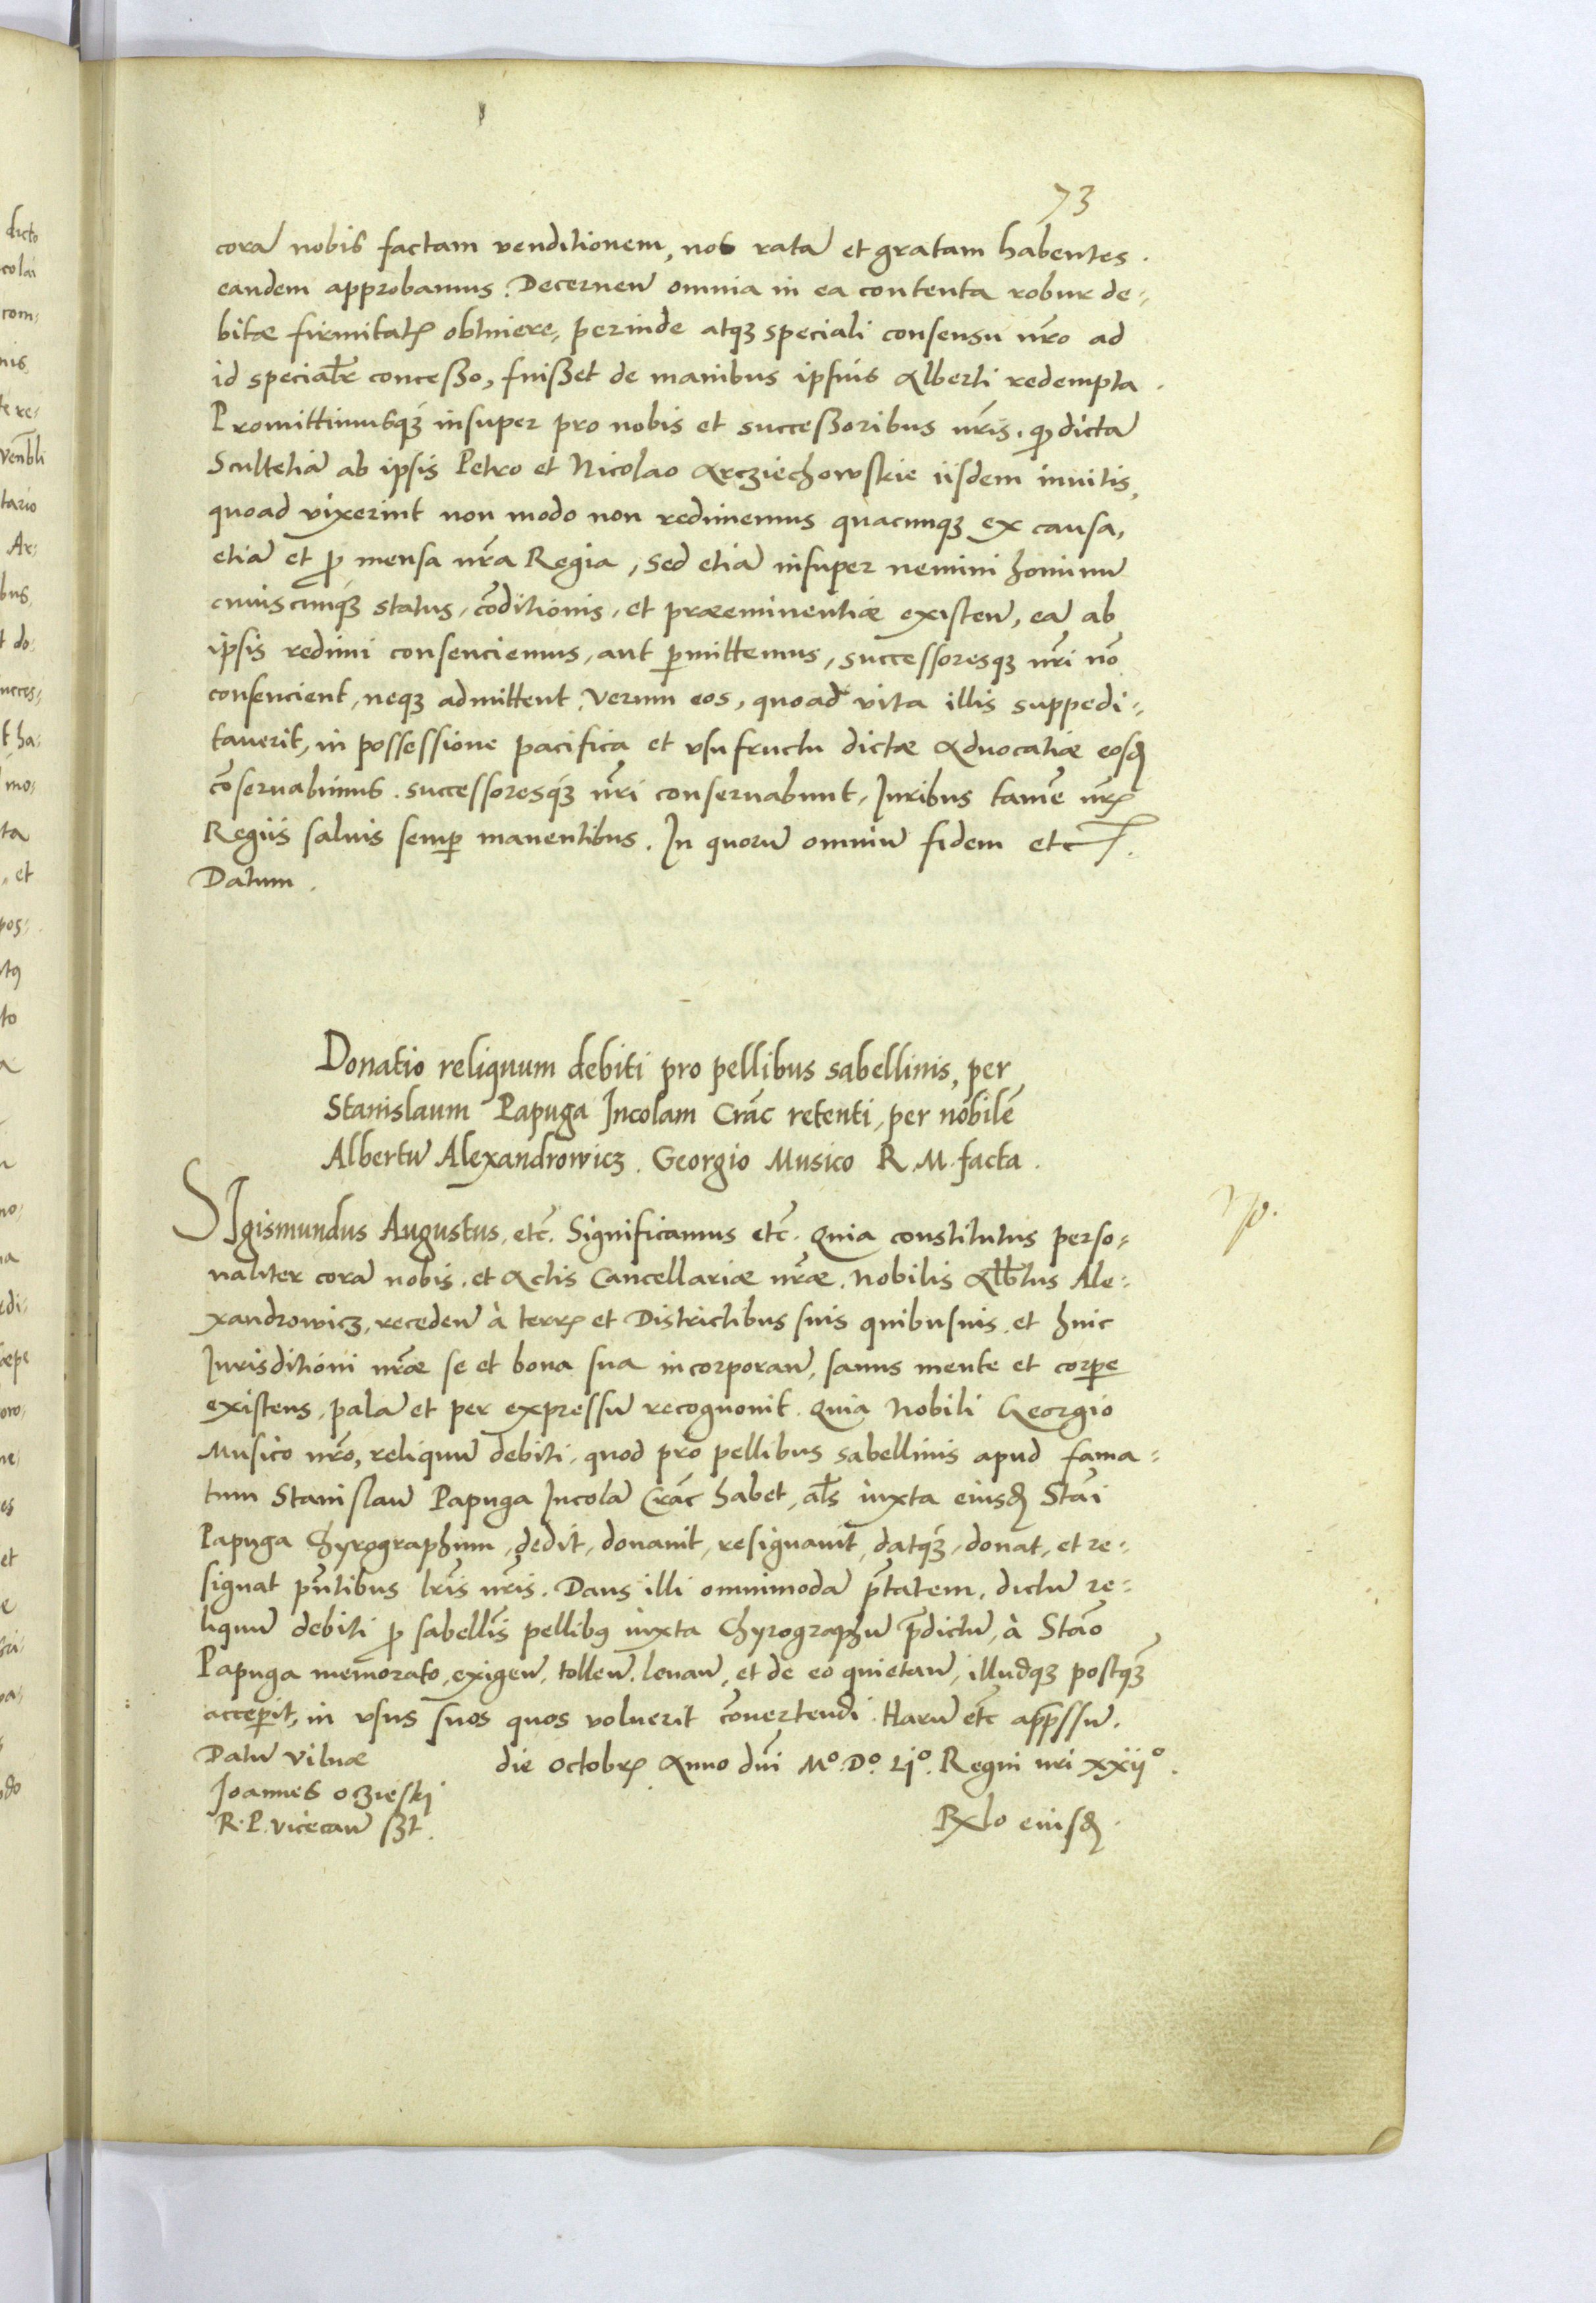 73
corã nobis factam venditionem, nos ratã et gratam habentes.
eandem approbamus. Decernen̄ omnia in ea contenta robur de:
bitæ firmitatꝭ obtinere, perinde atqꝫ speciali consensu nr̃o ad
id specialr̃ concesso, fuisset de manibus ipsius Alberti redempta.
Promittimusqꝫ insuper pro nobis et successoribus nr̃is. qꝫ dictã
Scultetiã ab ipsis Petro et Nicolao Arcziechowskie iisdem inuitis,
quoad vixerint non modo non redimemus quacunqꝫ ex causa,
etiã et ꝓ mensa nr̃a Regia, sed etiã insuper nemini hominũ
cuiuscunqꝫ status, cõditionis, et præeminentiæ existen̄, eã ab
ipsis redimi consenciemus, aut ꝑmittemus, successoresqꝫ nr̃i nõ
consencient, neqꝫ admittent. Verum eos, quoad vita illis suppedi:
tauerit, in possessione pacifica et vsufructu dictæ Aduocatiæ eosd̃
cõseruabimus. successoresqꝫ nr̃i conseruabunt, Iuribus tamẽ nr̃ꝭ
Regiis saluis semꝑ manentibus. In quorũ omniũ fidem etc.
Datum.
Donatio reliquum debiti pro pellibus sabellinis, per
Stanislaum Papuga Incolam Crac̃ retenti, per nobilẽ
Albertũ Alexandrowicz. Georgio Musico R. M. facta.
SIgismundus Augustus, etc̃. Significamus etc̃. Quia constitutus perso:
naliter corã nobis. et Actis Cancellariæ nr̃æ. Nobilis Alb̃tus Ale:
xandrowicz, receden̄ à terrꝭ et Districtibus suis quibusuis. et huic
Iurisditioni nr̃æ se et bona sua incorporan̄, sanus mente et corꝑe
existens, palã et per expressũ recognouit. Quia Nobili Georgio
Musico nr̃o, reliquũ debiti, quod pro pellibus sabellinis apud fama:
tum Stanislaũ Papuga Incolã Crac̃ habet, als̃ iuxta eiusd̃ Stãi
Papuga Chyrographum, dedit, donauit, resignauit, datqꝫ, donat, et re:
signat pñtibus lr̃is nr̃is. Dans illi omnimodã pt̃atem, dictũ re:
liquũ debiti ꝓ sabellis̃ pellibꝰ iuxta Chyrographũ p̃dictũ, à Stão
Papuga memorato, exigen̄, tollen̄. leuan̄, et de eo quietan̄, illudqꝫ postqꝫ̃
acceꝑit, in vsus suos quos voluerit cõuertendi. Harũ etc̃ app̃ssũ.
Datũ Vilnæ die Octobrꝭ Anno dñi Mº. Dº. Lijº. Regni nr̃i xxijº.
Joannes Oczieski
R. P. Vicecan̄ sszt.
Rx̃lo eiusd̃.